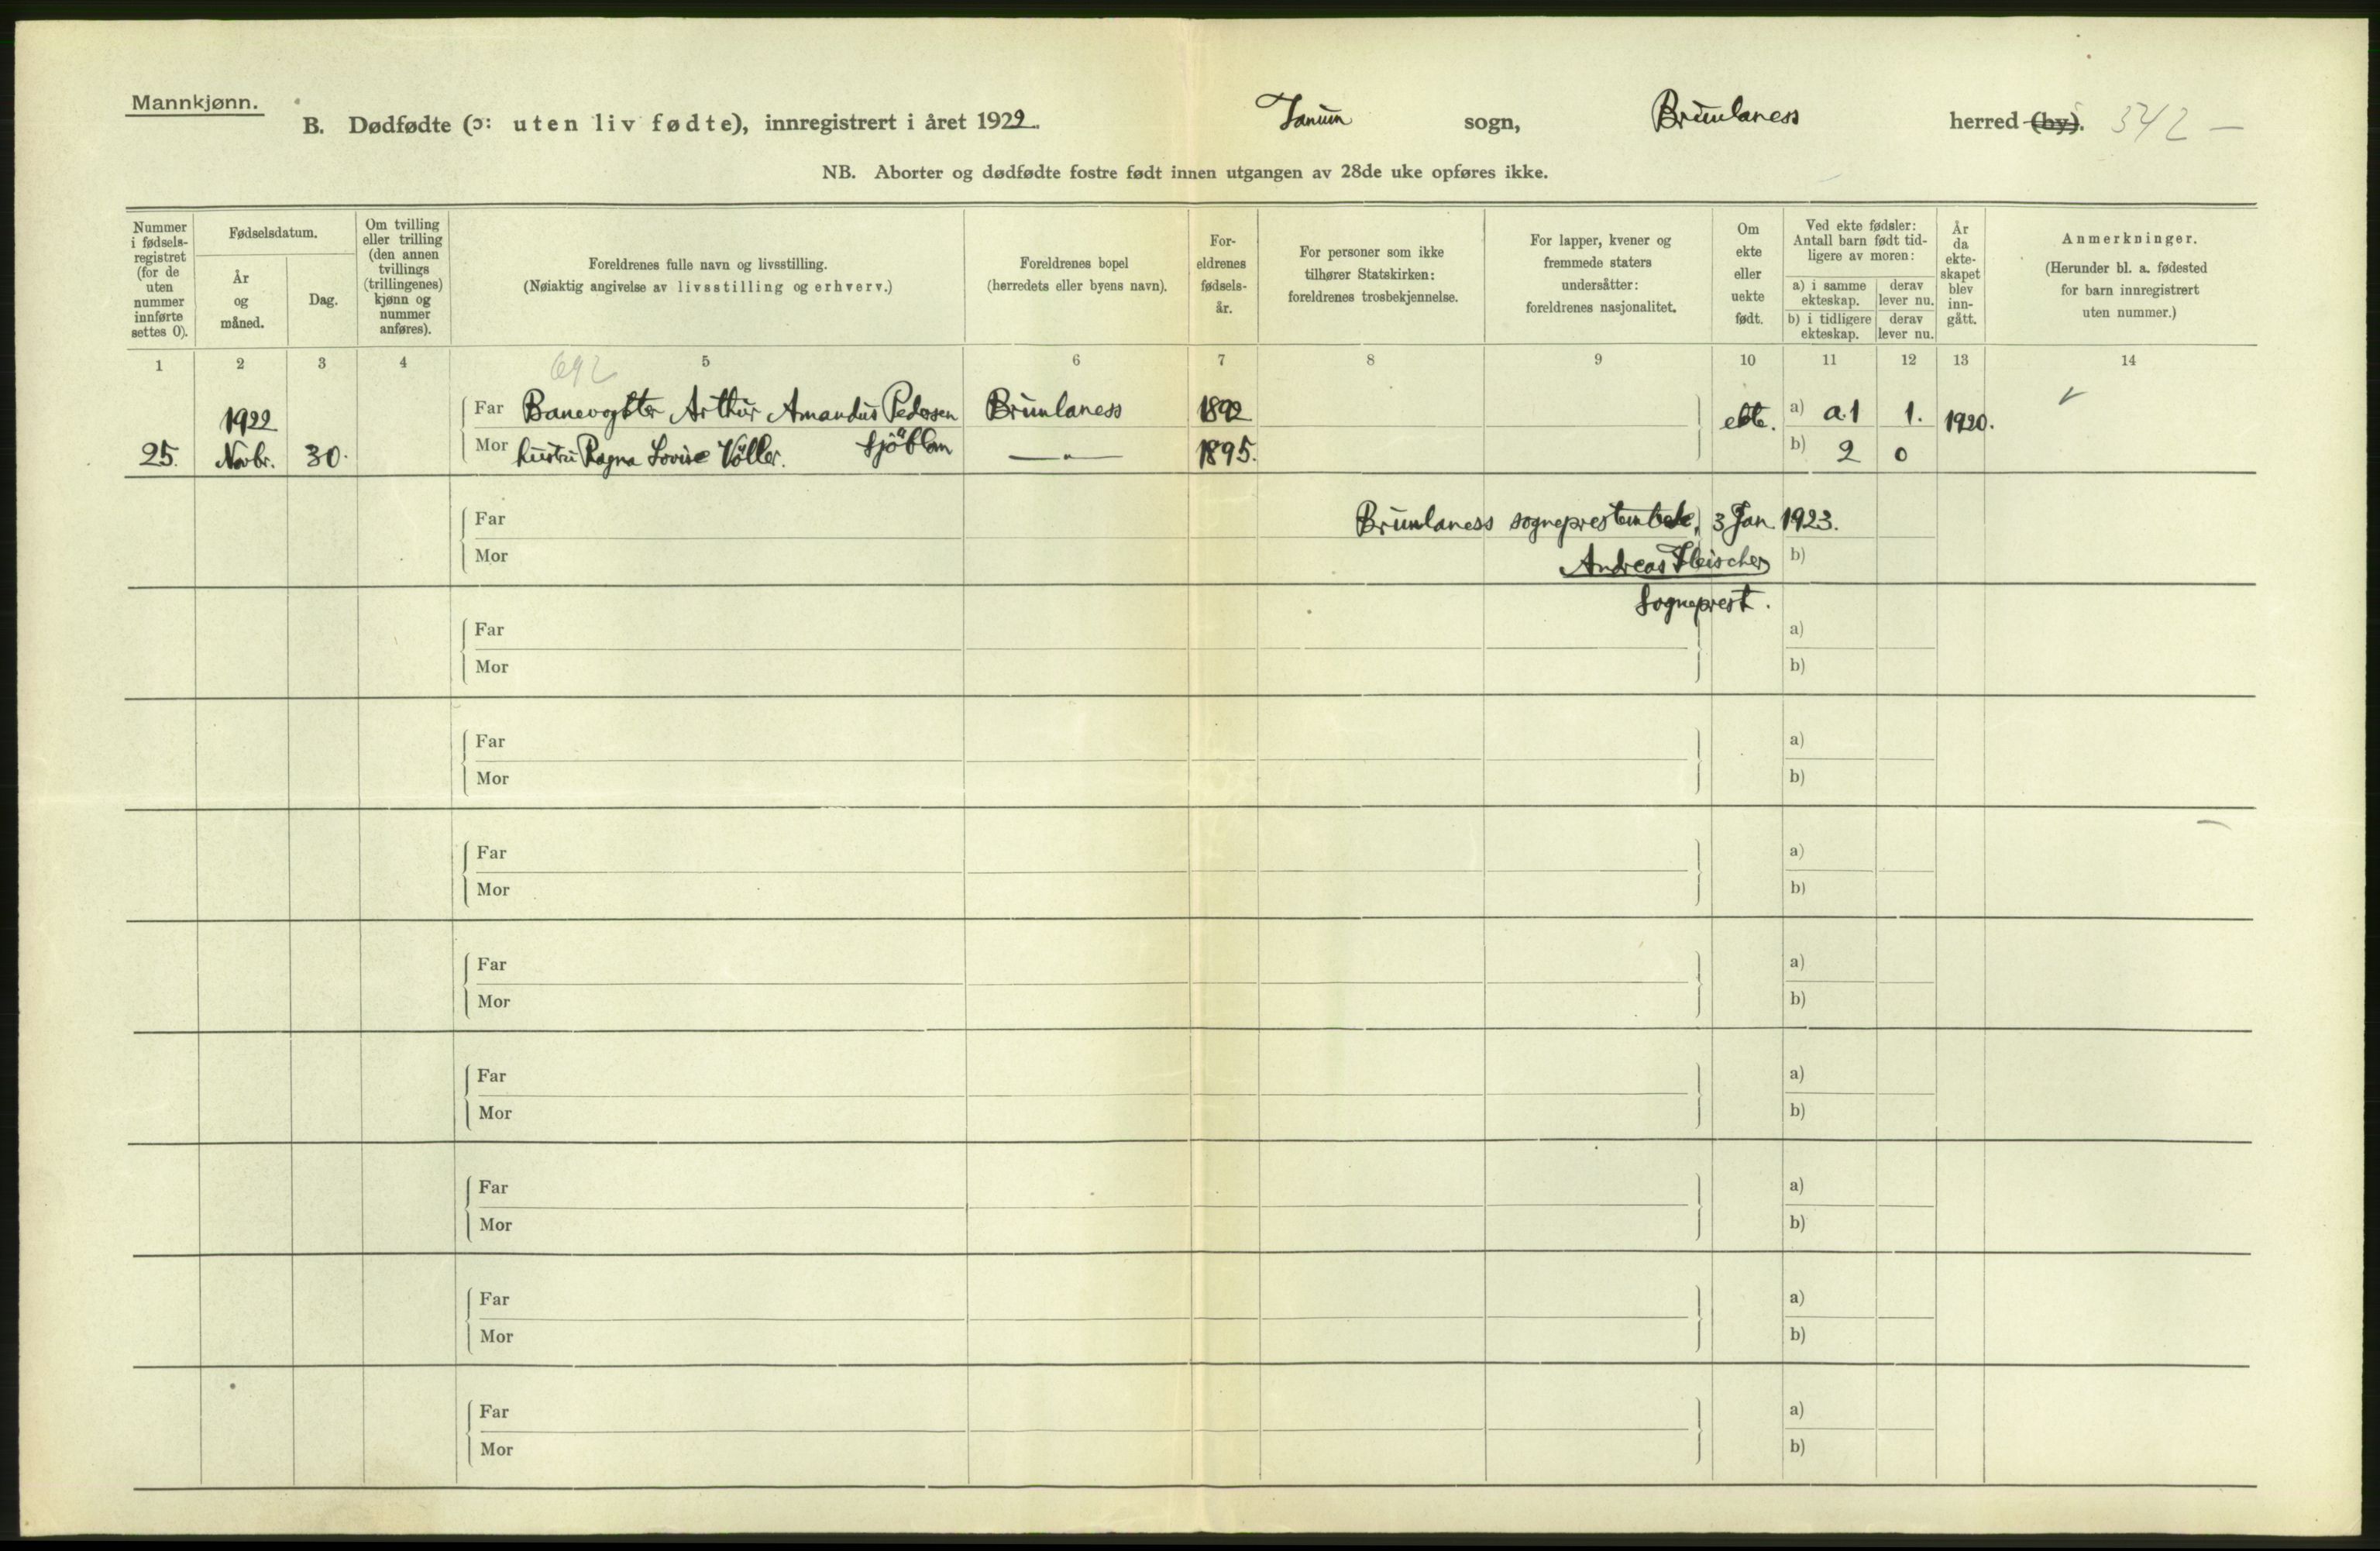 Mannkjønn.
B. Dødfødte (ɔ: uten liv fødte), innregistrert i året 1922. Tanum sogn, Brunlaness herred (by). 342 —
NB. Aborter og dødfødte fostre født innen utgangen av 28de uke opføres ikke.
Nummer i fødsels-registret (for de uten nummer innførte settes 0).
Fødselsdatum.
År og måned.
Dag.
Om tvilling eller trilling (den annen tvillings (trillingenes) kjønn og nummer anføres).
Foreldrenes fulle navn og livsstilling.
(Nøiaktig angivelse av livsstilling og erhverv.)
Foreldrenes bopel
(herredets eller byens navn).
For-eldrenes fødsels-år.
For personer som ikke tilhører Statskirken: foreldrenes trosbekjennelse.
For lapper, kvener og fremmede staters undersåtter: foreldrenes nasjonalitet.
Om ekte eller uekte født.
Ved ekte fødsler: Antall barn født tid-ligere av moren:
a) i samme ekteskap. derav lever nu.
b) i tidligere ekteskap. derav lever nu.
År da ekte-skapet blev inn-gått.
Anmerkninger.
(Herunder bl. a. fødested for barn innregistrert uten nummer.)
1 2 3 4 5 6 7 8 9 10 11 12 13 14
692
Far Banevogter Arthur Amandus Pedersen Brunlaness 1892
1922 ekte. a) a.1 1. 1920.
25. Novbr. 30. Mor hustru Ragna Lovise Völler. Sjöblom —„— 1895. b) 2 0
Far Brunlaness sogneprestembede, 3 Jan. 1923.
Mor Andreas Fleischer b)
Sogneprest.
Far a)
Mor b)
Far a)
Mor b)
Far a)
Mor b)
Far a)
Mor b)
Far a)
Mor b)
Far a)
Mor b)
Far a)
Mor b)
Far a)
Mor b)